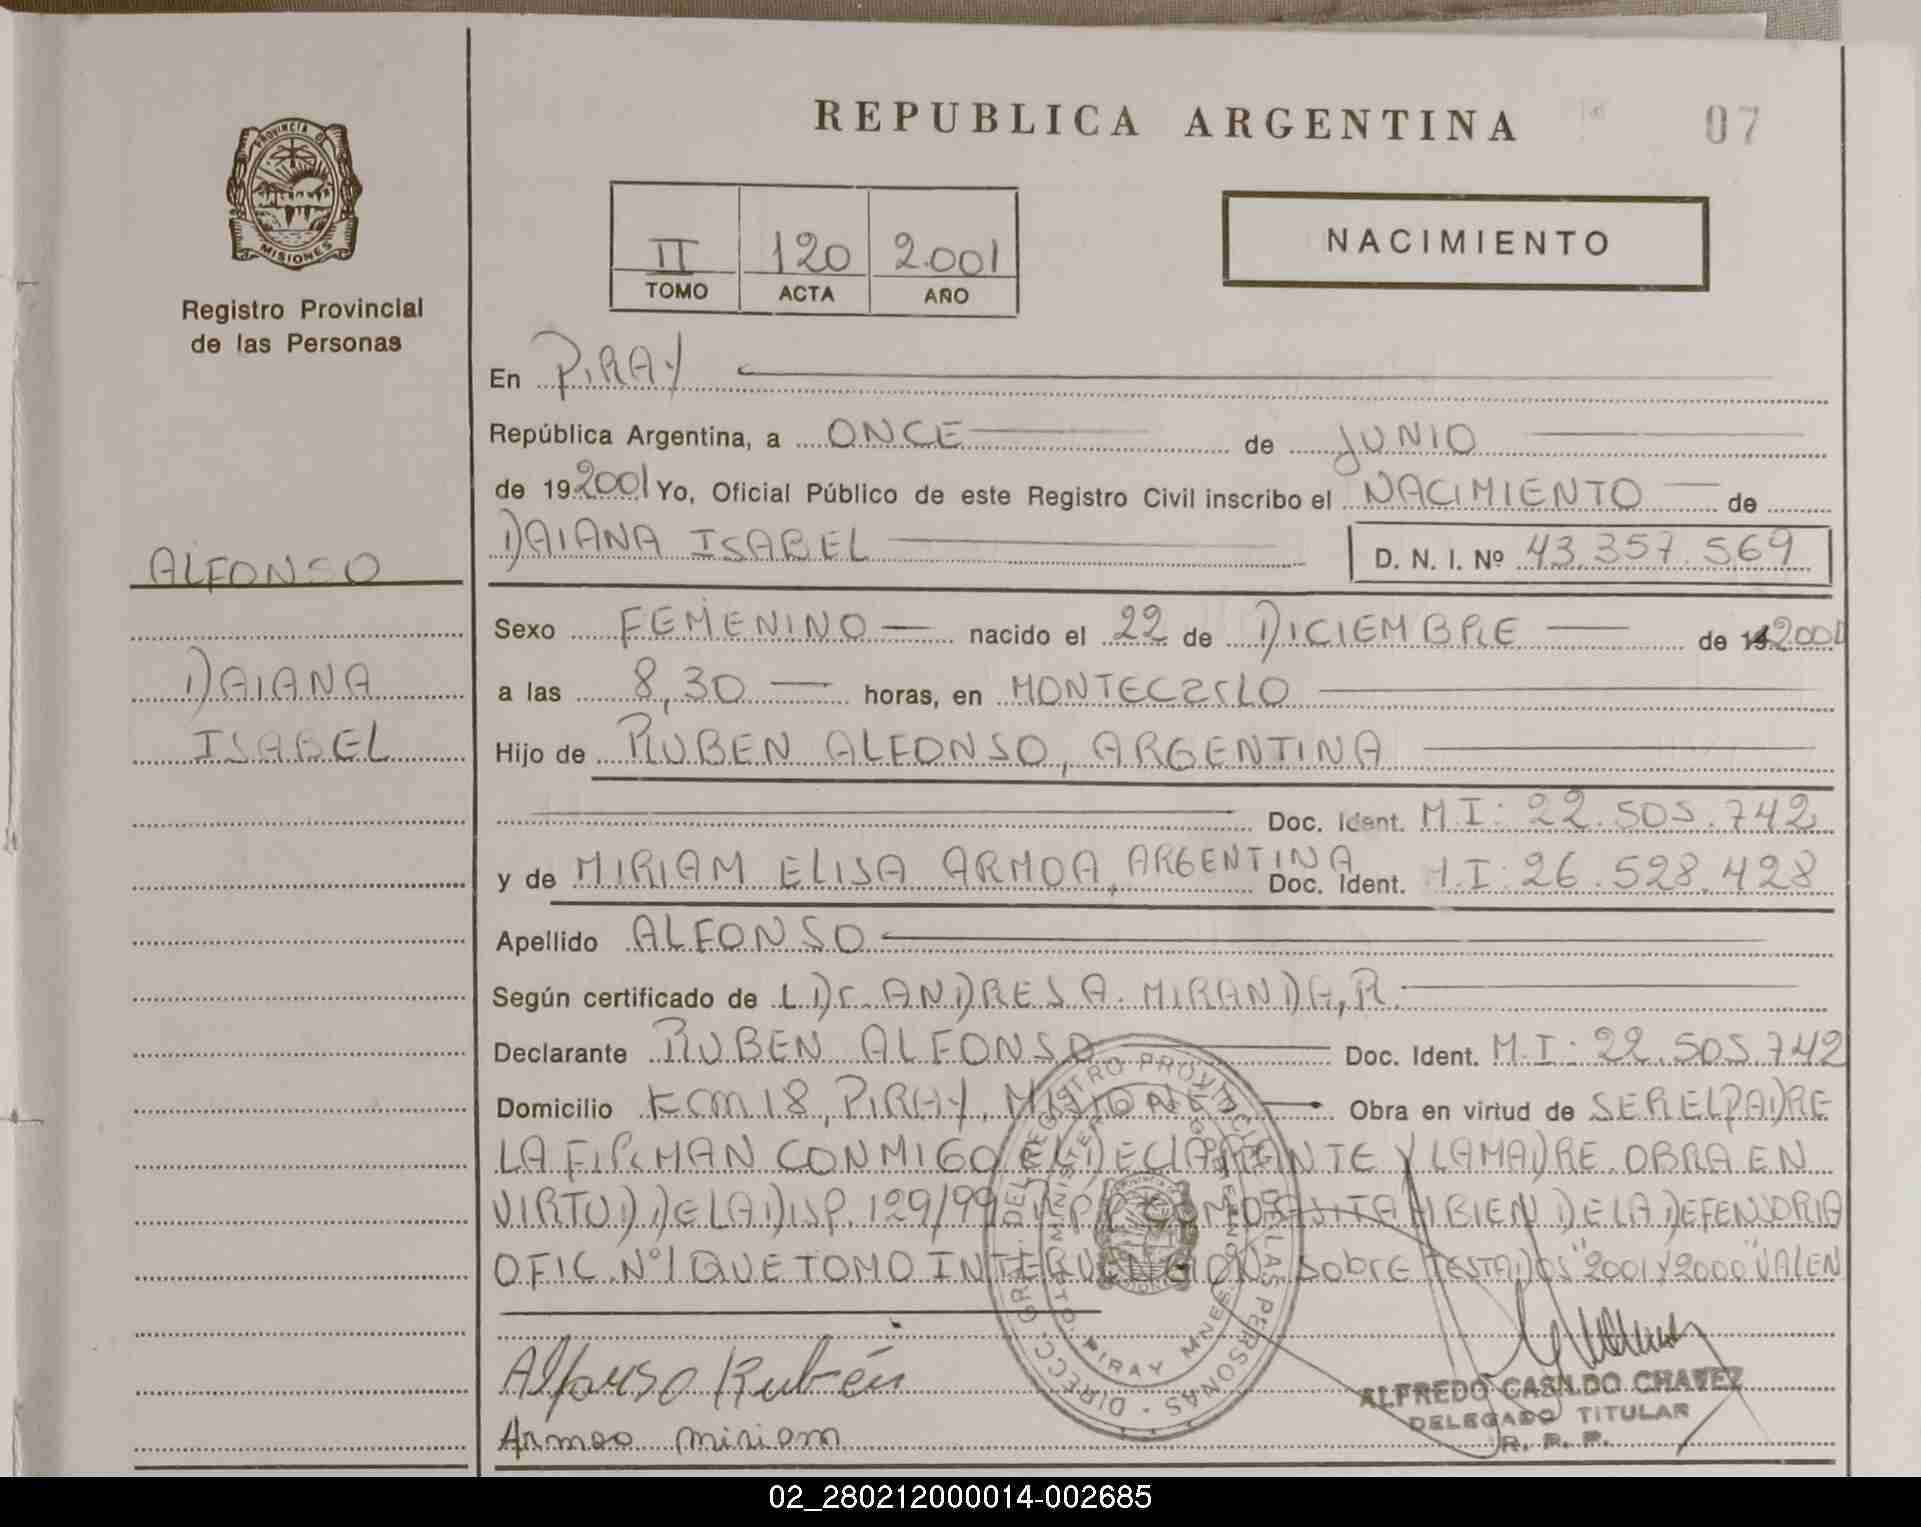 REPUBLICA ARGENTINA
07
PROVINCIA DE
MISIONES
Registro Provincial
de las Personas
II 120 2.001
TOMO ACTA AÑO
NACIMIENTO
En PIRAY
República Argentina, a ONCE de JUNIO
de 19 2001 Yo, Oficial Público de este Registro Civil inscribo el NACIMIENTO de
DAIANA ISABEL D. N. I. Nº 43.357.569
ALFONSO
DAIANA
ISABEL
Sexo FEMENINO nacido el 22 de DICIEMBRE de
a las 8,30 horas, en
Hijo de RUBEN ALFONSO, ARGENTINA
Doc. Ident. M.I: 22.505.742
y de MIRIAM ELISA ARMOA, ARGENTINA Doc. Ident. M.I: 26.528.428
Apellido ALFONSO
Según certificado de L Dr. ANDRES A. MIRANDA, R.
Declarante RUBEN ALFONSO Doc. Ident. M.I: 22.505.742
Domicilio KCM 18, PIRAY, MISIONES Obra en virtud de SER EL PADRE
LA FIRMAN CONMIGO EL DECLARANTE Y LA MADRE. OBRA EN
VIRTUD DE LA DISP. 129/99 COMO ASI TAMBIEN DE LA DEFENSORIA
OFIC. Nº1 QUE TOMO INTERVENCION sobre TESTADOS "2001 Y 2000" VALEN
Alfonso Rubén
Armoa miriam
DIRECC. GRAL. DEL REGISTRO PROVINCIAL DE LAS PERSONAS
PIRAY MNES.
ALFREDO CASILDO CHAVEZ
DELEGADO TITULAR
R. P. P.
02_280212000014-002685